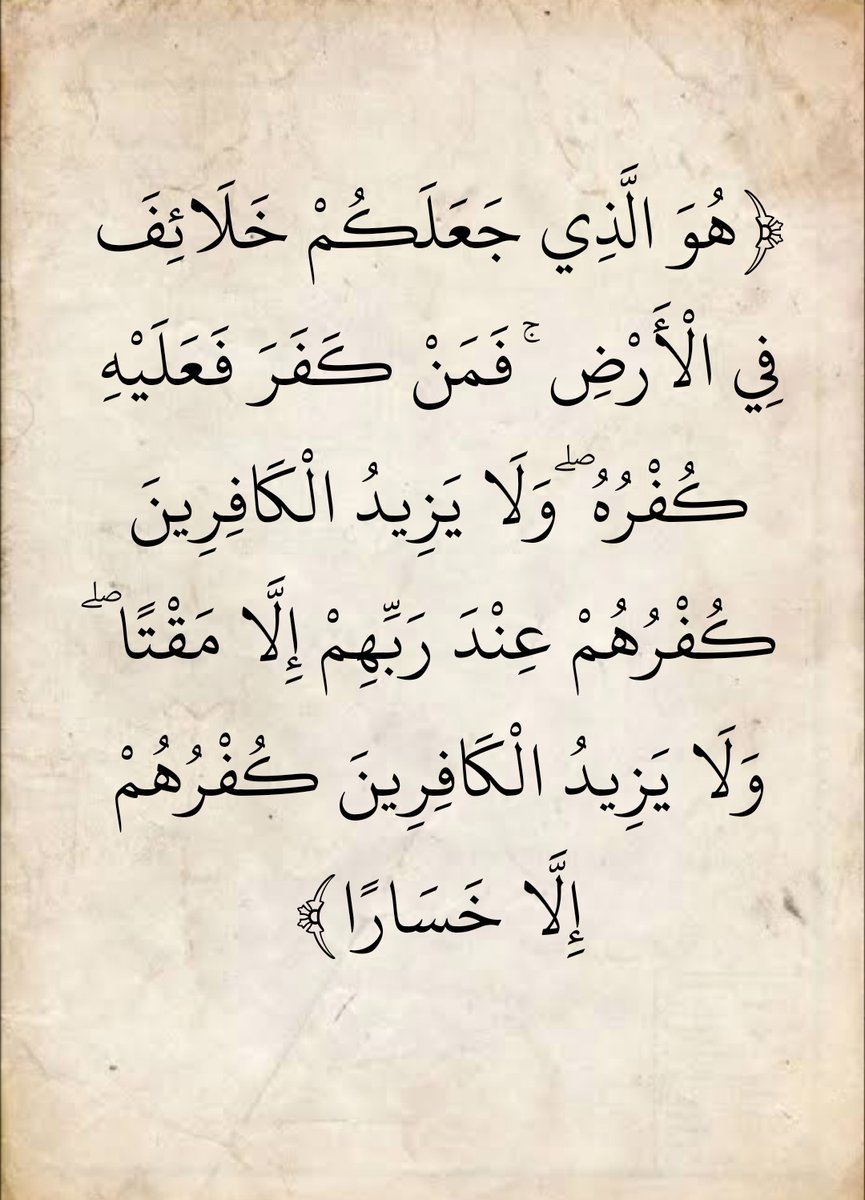 ﴿هُوَ الَّذِي جَعَلَكُمْ خَلَائِفَ
فِي الْأَرْضِ ۚ فَمَنْ كَفَرَ فَعَلَيْهِ
كُفْرُهُ ۖ وَلَا يَزِيدُ الْكَافِرِينَ
كُفْرُهُمْ عِنْدَ رَبِّهِمْ إِلَّا مَقْتًا ۖ
وَلَا يَزِيدُ الْكَافِرِينَ كُفْرُهُمْ
إِلَّا خَسَارًا﴾